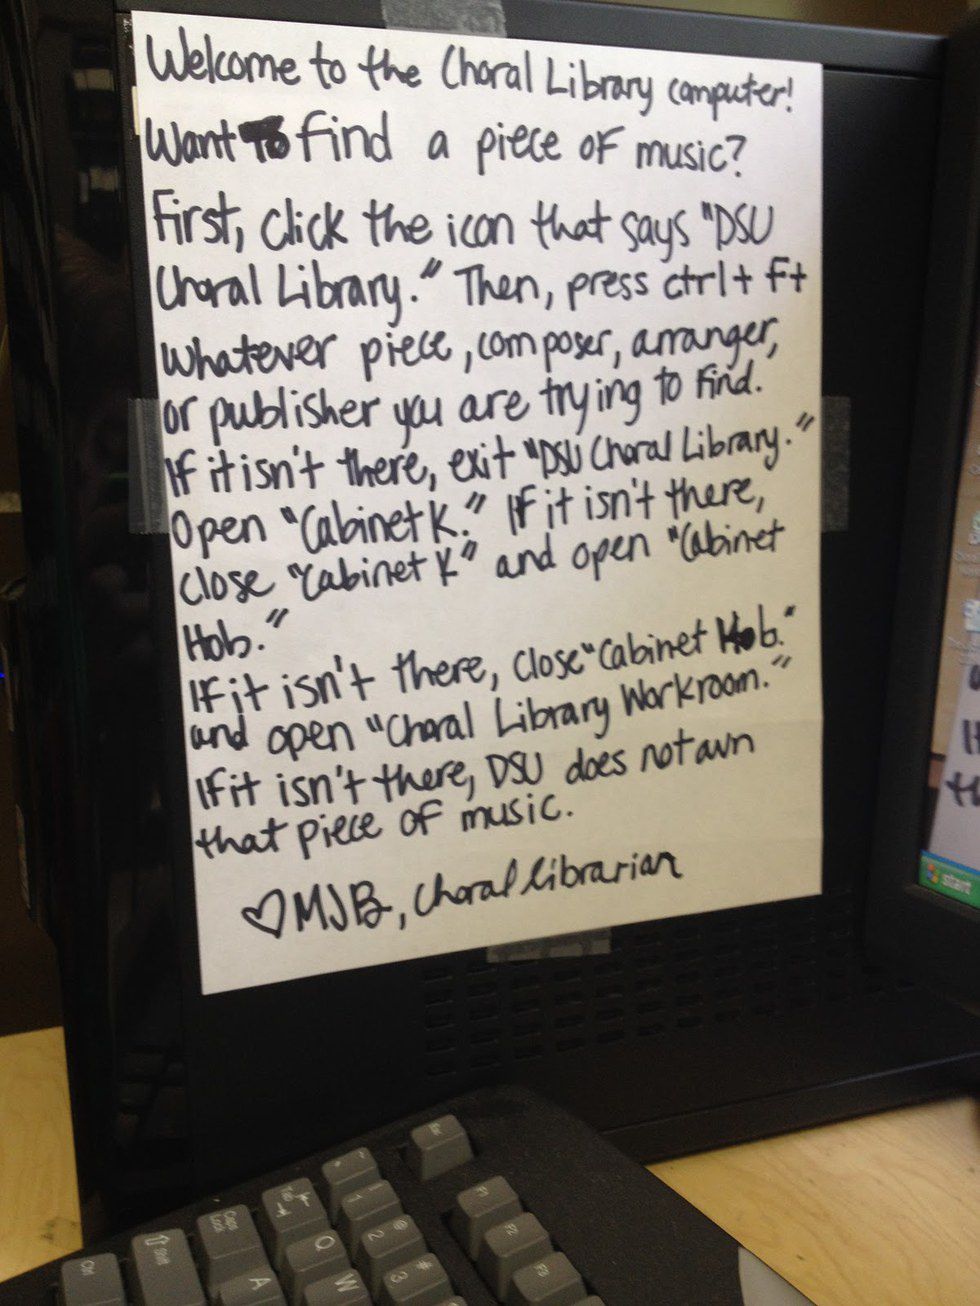 Welcome to the Choral Library computer!
Want to find a piece of music?
First, click the icon that says "DSU
Choral Library." Then, press ctrl + f +
whatever piece, composer, arranger,
or publisher you are trying to find.
If it isn't there, exit "DSU Choral Library."
Open "Cabinet K." If it isn't there,
close "Cabinet K" and open "Cabinet
Hob."
If it isn't there, close "Cabinet Hob."
and open "Choral Library Workroom."
If it isn't there, DSU does not own
that piece of music.
♡MJB, Choral librarian
start
Esc
F1
F2
F3
~
1
@
2
#
3
Tab
Q
W
Caps
Lock
A
Shift
Ctrl